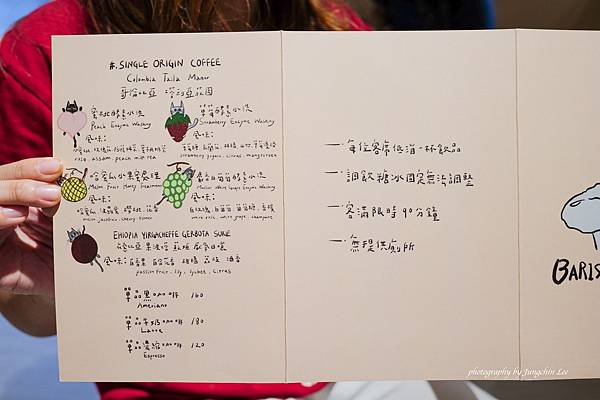 #. SINGLE ORIGIN COFFEE
Colombia Taila Manor
哥倫比亞 塔拉莊園
蜜桃酵素水洗
Peach Enzyme Washing
風味:
rose, assam, peach milk tea
草莓酵素水洗
Strawberry Enzyme Washing
風味:
strawberry yogurt, citrus, mangosteen
哈蜜瓜水果蜜處理
Melon Fruit Honey Treatment
風味:
麝香白葡萄酵素水洗
Muscat White Grape Enzyme Washing
風味:
white rose, white grape, champagne
EHIOPIA YIRGACHEFFE GERBOTA SUKE
風味:百香果 百合花香 甜橘 荔枝
passion fruit, lily, lychee, citrus
單品黑咖啡 160
Ameriano
單品牛奶咖啡 180
Latte
單品濃縮咖啡 120
Espresso
一. 每位客席低消一杯飲品
一. 調飲糖冰固定無法調整
一. 客滿限時90分鐘
一. 無提供廁所
BARIS
photography by Jungchin Lee